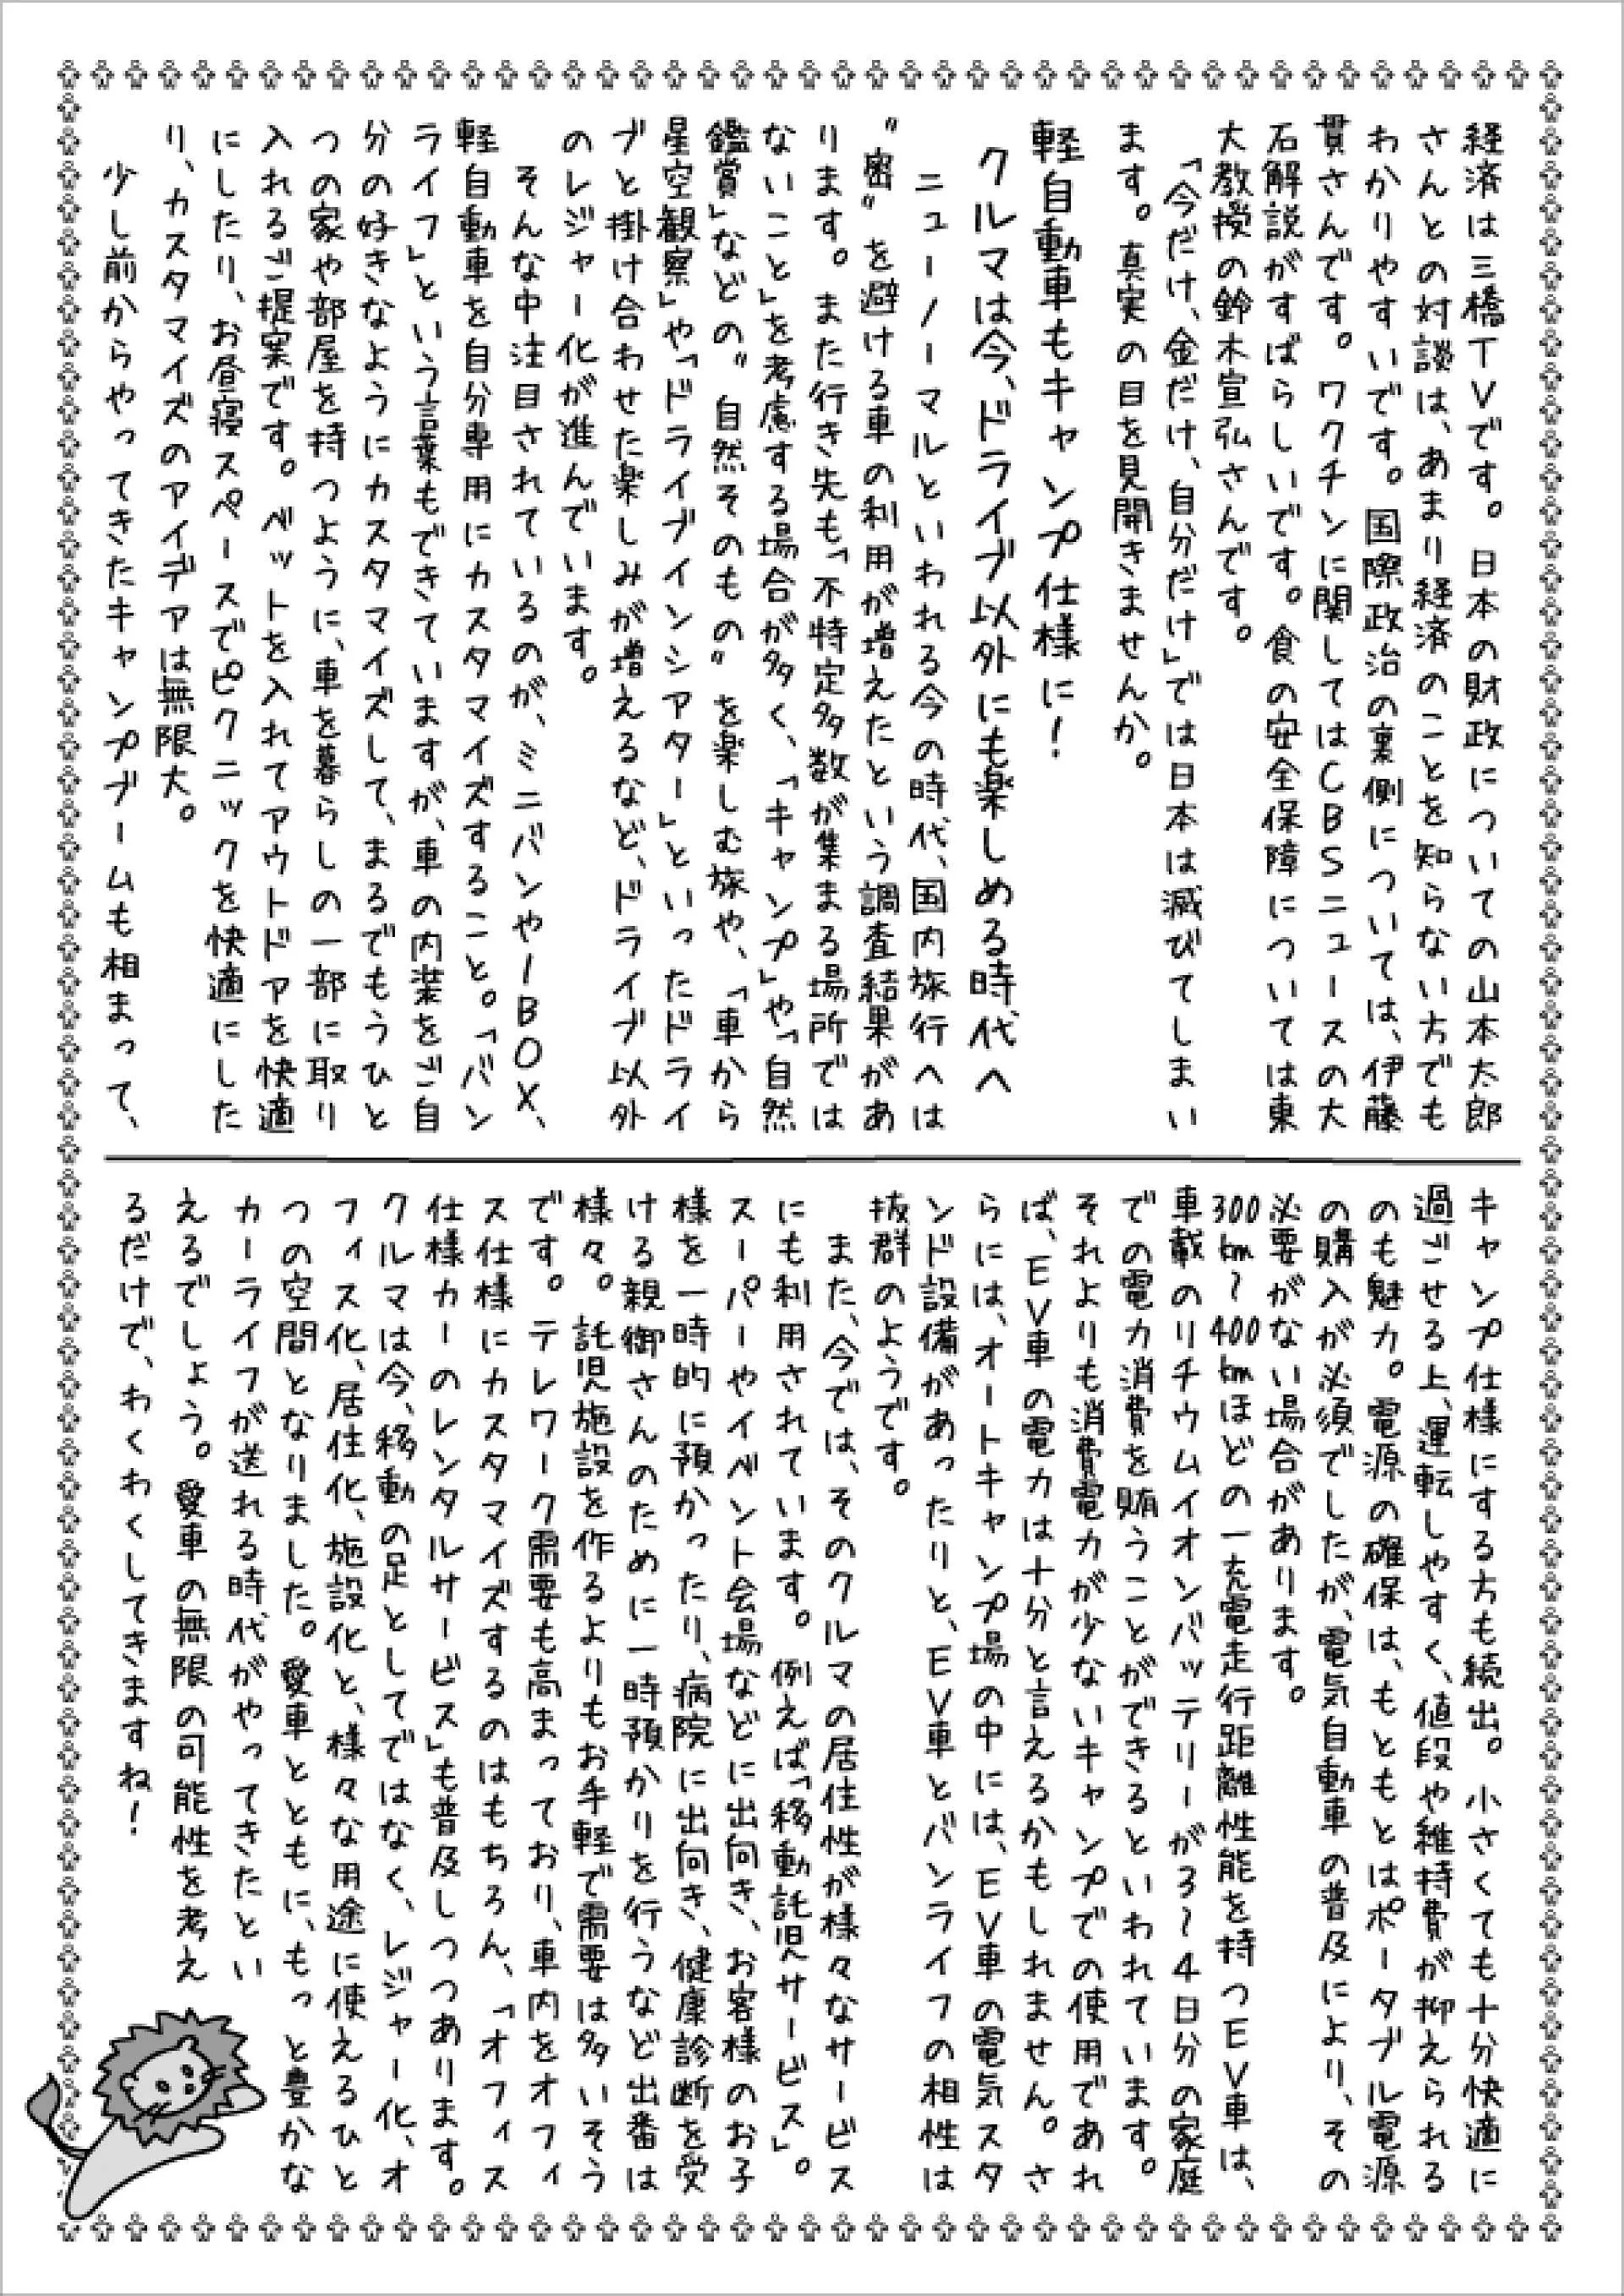 経済は三橋TVです。日本の財政についての山本太郎
さんとの対談は、あまり経済のことを知らない方でも
わかりやすいです。国際政治の裏側については、伊藤
貫さんです。ワクチンに関してはCBSニュースの大
石解説がすばらしいです。食の安全保障については東
大教授の鈴木宣弘さんです。
「今だけ、金だけ、自分だけ」では日本は滅びてしまい
ます。真実の目を見開きませんか。
軽自動車もキャンプ仕様に！
クルマは今、ドライブ以外にも楽しめる時代へ
ニューノーマルといわれる今の時代、国内旅行へは
〝密〟を避ける車の利用が増えたという調査結果があ
ります。また行き先も「不特定多数が集まる場所では
ないこと」を考慮する場合が多く、「キャンプ」や「自然
鑑賞」などの〝自然そのもの〟を楽しむ旅や、「車から
星空観察」や「ドライブインシアター」といったドライ
ブと掛け合わせた楽しみが増えるなど、ドライブ以外
のレジャー化が進んでいます。
そんな中注目されているのが、ミニバンや1BOX、
軽自動車を自分専用にカスタマイズすること。「バン
ライフ」という言葉もできていますが、車の内装をご自
分の好きなようにカスタマイズして、まるでもうひと
つの家や部屋を持つように、車を暮らしの一部に取り
入れるご提案です。ベットを入れてアウトドアを快適
にしたり、お昼寝スペースでピクニックを快適にした
り、カスタマイズのアイデアは無限大。
少し前からやってきたキャンプブームも相まって、
キャンプ仕様にする方も続出。小さくても十分快適に
過ごせる上、運転しやすく、値段や維持費が抑えられる
のも魅力。電源の確保は、もともとはポータブル電源
の購入が必須でしたが、電気自動車の普及により、その
必要がない場合があります。
300km〜400kmほどの一充電走行距離性能を持つEV車は、
車載のリチウムイオンバッテリーが3〜4日分の家庭
での電力消費を賄うことができるといわれています。
それよりも消費電力が少ないキャンプでの使用であれ
ば、EV車の電力は十分と言えるかもしれません。さ
らには、オートキャンプ場の中には、EV車の電気スタ
ンド設備があったりと、EV車とバンライフの相性は
抜群のようです。
また、今では、そのクルマの居住性が様々なサービス
にも利用されています。例えば「移動託児サービス」。
スーパーやイベント会場などに出向き、お客様のお子
様を一時的に預かったり、病院に出向き、健康診断を受
ける親御さんのために一時預かりを行うなど出番は
様々。託児施設を作るよりもお手軽で需要は多いそう
です。テレワーク需要も高まっており、車内をオフィ
ス仕様にカスタマイズするのはもちろん、「オフィス
仕様カーのレンタルサービス」も普及しつつあります。
クルマは今、移動の足としてではなく、レジャー化、オ
フィス化、居住化、施設化と、様々な用途に使えるひと
つの空間となりました。愛車とともに、もっと豊かな
カーライフが送れる時代がやってきたとい
えるでしょう。愛車の無限の可能性を考え
るだけで、わくわくしてきますね！